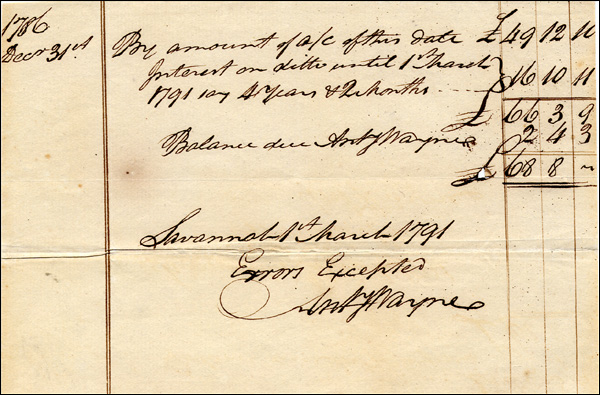 1786
Decr 31st By amount of a/c of this date £ 49 12 10
Interest on ditto until 1st March
1791 say 4 Years & 2 Months 16 10 11
£ 66 3 9
Balance due Anty Wayne 2 4 3
£ 68 8 ~
Savannah 1st March 1791
Errors Excepted
Anty Wayne